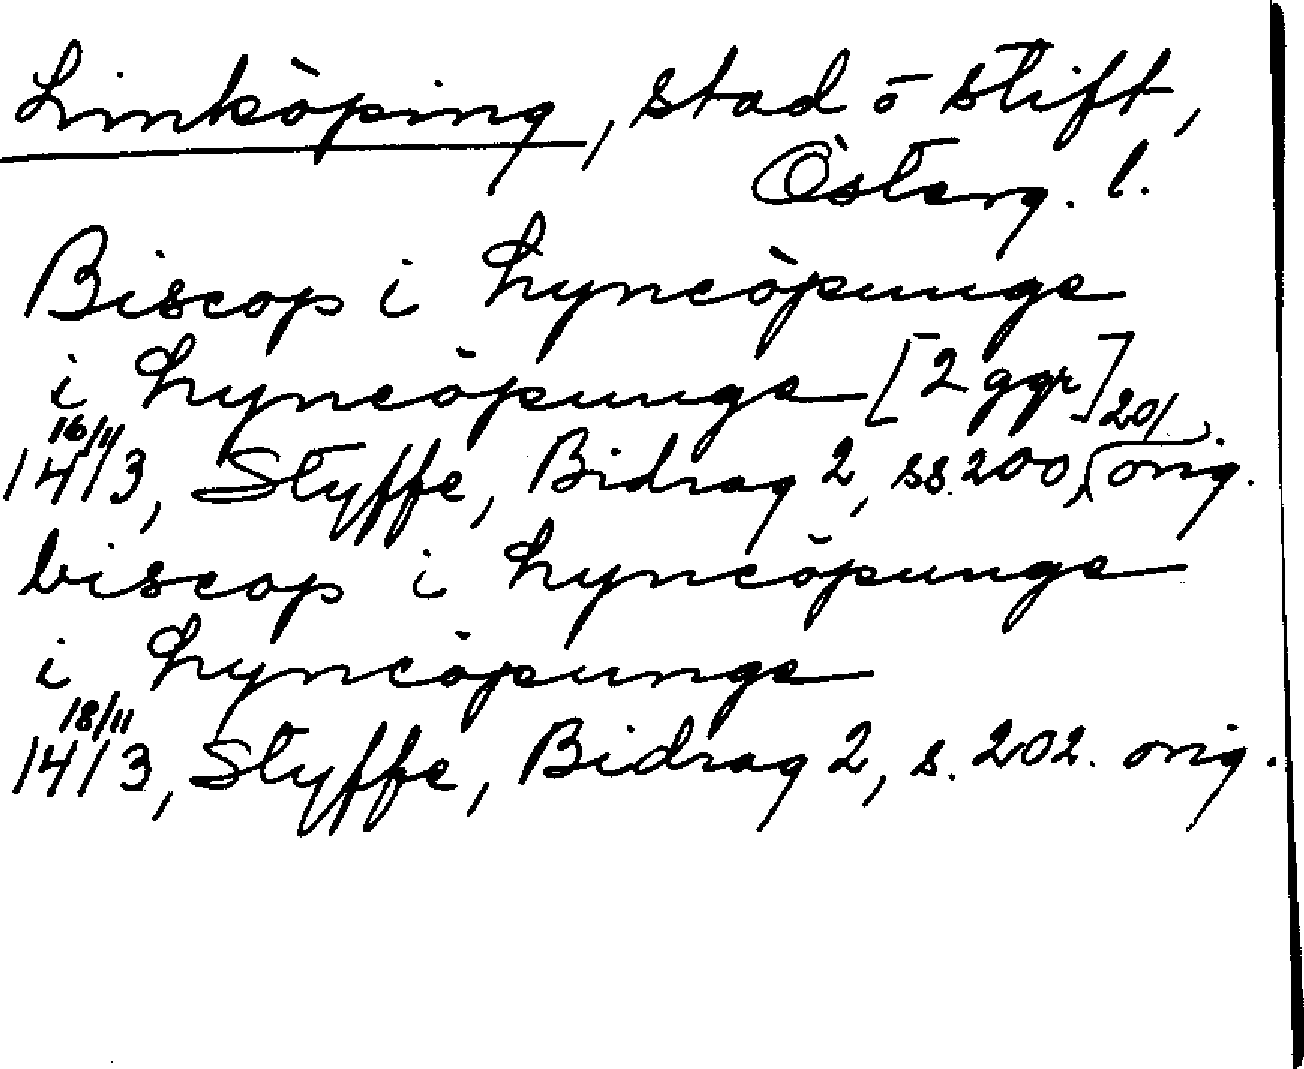 Linköping, stad o stift,
Österg. l.
Biscop i Lyncöpunge
i Lyncöpunge [2 ggr]
16/11 1413, Styffe, Bidrag 2, ss. 200, 201, orig.
biscop i Lyncöpunge
i Lyncöpunge
18/11 1413, Styffe, Bidrag 2, s. 202. orig.